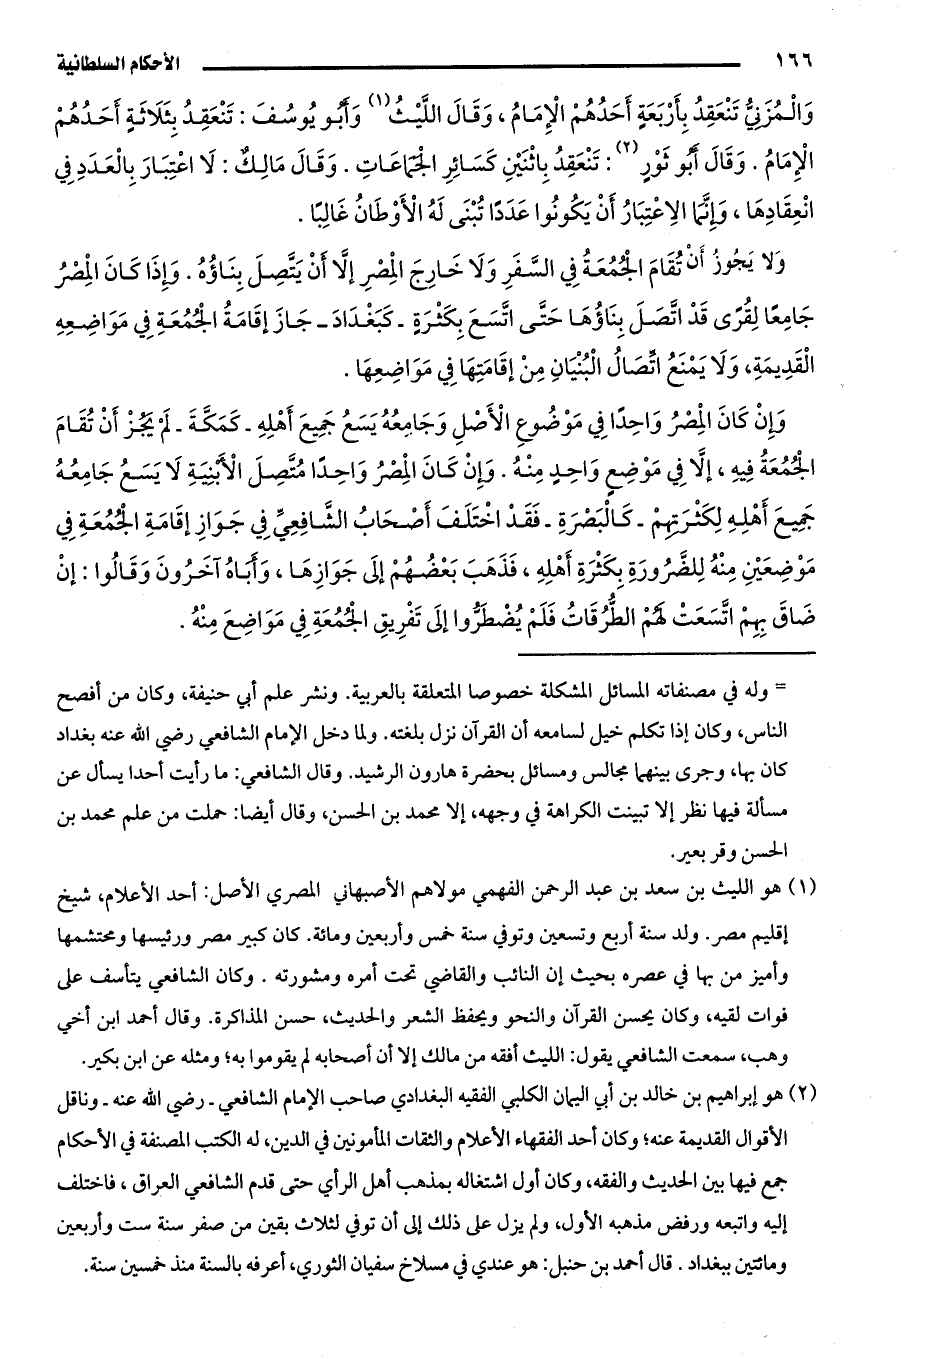 ١٦٦ الأحكام السلطانية
وَالْمُزَنِيُّ تَنْعَقِدُ بِأَرْبَعَةٍ أَحَدُهُمْ الْإِمَامُ ، وَقَالَ اللَّيْثُ(١) وَأَبُو يُوسُفَ : تَنْعَقِدُ بِثَلَاثَةٍ أَحَدُهُمْ
الْإِمَامُ . وَقَالَ أَبُو ثَوْرٍ(٢) : تَنْعَقِدُ بِاثْنَيْنِ كَسَائِرِ الْجَمَاعَاتِ . وَقَالَ مَالِكٌ : لَا اعْتِبَارَ بِالْعَدَدِ فِي
انْعِقَادِهَا ، وَإِنَّمَا الِاعْتِبَارُ أَنْ يَكُونُوا عَدَدًا تُبْنَى لَهُ الْأَوْطَانُ غَالِبًا .
وَلَا يَجُوزُ أَنْ تُقَامَ الْجُمُعَةُ فِي السَّفَرِ وَلَا خَارِجَ الْمِصْرِ إلَّا أَنْ يَتَّصِلَ بِنَاؤُهُ . وَإِذَا كَانَ الْمِصْرُ
جَامِعًا لِقُرًى قَدْ اتَّصَلَ بِنَاؤُهَا حَتَّى اتَّسَعَ بِكَثْرَةٍ ـ كَبَغْدَادَ ـ جَازَ إقَامَةُ الْجُمُعَةِ فِي مَوَاضِعِهِ
الْقَدِيمَةِ، وَلَا يَمْنَعُ اتِّصَالُ الْبُنْيَانِ مِنْ إقَامَتِهَا فِي مَوَاضِعِهَا .
وَإِنْ كَانَ الْمِصْرُ وَاحِدًا فِي مَوْضُوعِ الْأَصْلِ وَجَامِعُهُ يَسَعُ جَمِيعَ أَهْلِهِ ـ كَمَكَّةَ ـ لَمْ يَجُزْ أَنْ تُقَامَ
الْجُمُعَةُ فِيهِ ، إلَّا فِي مَوْضِعٍ وَاحِدٍ مِنْهُ . وَإِنْ كَانَ الْمِصْرُ وَاحِدًا مُتَّصِلَ الْأَبْنِيَةِ لَا يَسَعُ جَامِعُهُ
جَمِيعَ أَهْلِهِ لِكَثْرَتِهِمْ ـ كَالْبَصْرَةِ ـ فَقَدْ اخْتَلَفَ أَصْحَابُ الشَّافِعِيِّ فِي جَوَازِ إقَامَةِ الْجُمُعَةِ فِي
مَوْضِعَيْنِ مِنْهُ لِلضَّرُورَةِ بِكَثْرَةِ أَهْلِهِ ، فَذَهَبَ بَعْضُهُمْ إلَى جَوَازِهَا ، وَأَبَاهُ آخَرُونَ وَقَالُوا : إنْ
ضَاقَ بِهِمْ اتَّسَعَتْ لَهُمْ الطُّرُقَاتُ فَلَمْ يُضْطَرُّوا إلَى تَفْرِيقِ الْجُمُعَةِ فِي مَوَاضِعَ مِنْهُ .
= وله في مصنفاته المسائل المشكلة خصوصا المتعلقة بالعربية. ونشر علم أبي حنيفة، وكان من أفصح
الناس، وكان إذا تكلم خيل لسامعه أن القرآن نزل بلغته. ولما دخل الإمام الشافعي رضي الله عنه بغداد
كان بها، وجرى بينهما مجالس ومسائل بحضرة هارون الرشيد. وقال الشافعي: ما رأيت أحدا يسأل عن
مسألة فيها نظر إلا تبينت الكراهة في وجهه، إلا محمد بن الحسن، وقال أيضا: حملت من علم محمد بن
الحسن وقر بعير.
(١) هو الليث بن سعد بن عبد الرحمن الفهمي مولاهم الأصبهاني المصري الأصل: أحد الأعلام، شيخ
إقليم مصر. ولد سنة أربع وتسعين وتوفي سنة خمس وأربعين ومائة. كان كبير مصر ورئيسها ومحتشمها
وأميز من بها في عصره بحيث إن النائب والقاضي تحت أمره ومشورته . وكان الشافعي يتأسف على
فوات لقيه، وكان يحسن القرآن والنحو ويحفظ الشعر والحديث، حسن المذاكرة. وقال أحمد ابن أخي
وهب، سمعت الشافعي يقول: الليث أفقه من مالك إلا أن أصحابه لم يقوموا به؛ ومثله عن ابن بكير.
(٢) هو إبراهيم بن خالد بن أبي اليمان الكلبي الفقيه البغدادي صاحب الإمام الشافعي ـ رضي الله عنه ـ وناقل
الأقوال القديمة عنه؛ وكان أحد الفقهاء الأعلام والثقات المأمونين في الدين، له الكتب المصنفة في الأحكام
جمع فيها بين الحديث والفقه، وكان أول اشتغاله بمذهب أهل الرأي حتى قدم الشافعي العراق ، فاختلف
إليه واتبعه ورفض مذهبه الأول، ولم يزل على ذلك إلى أن توفي لثلاث بقين من صفر سنة ست وأربعين
ومائتين ببغداد . قال أحمد بن حنبل: هو عندي في مسلاخ سفيان الثوري، أعرفه بالسنة منذ خمسين سنة.